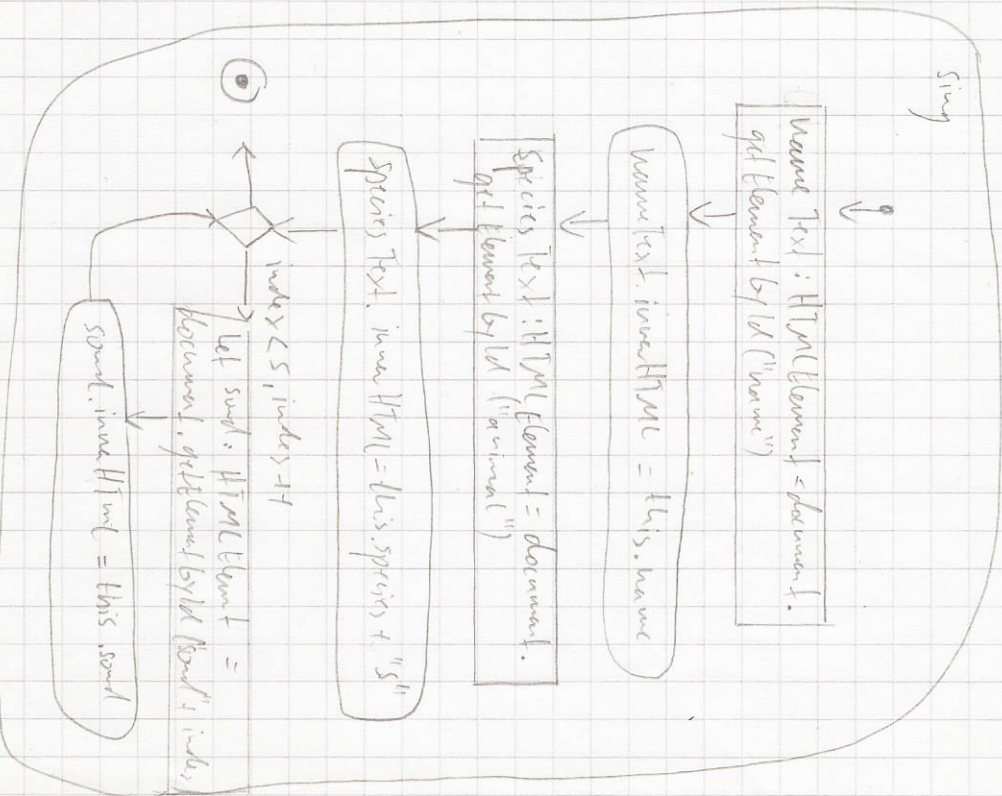 sing
nameText : HTMLElement = document.
getElementById("name")
nameText.innerHTML = this.name
SpeciesText : HTMLElement = document.
getElementById ("animal")
SpeciesText. innerHTML = this.species + "s"
index < 5, index++
let sound : HTMLElement =
document.getElementById("sound"+ index
sound.innerHTML = this.sound